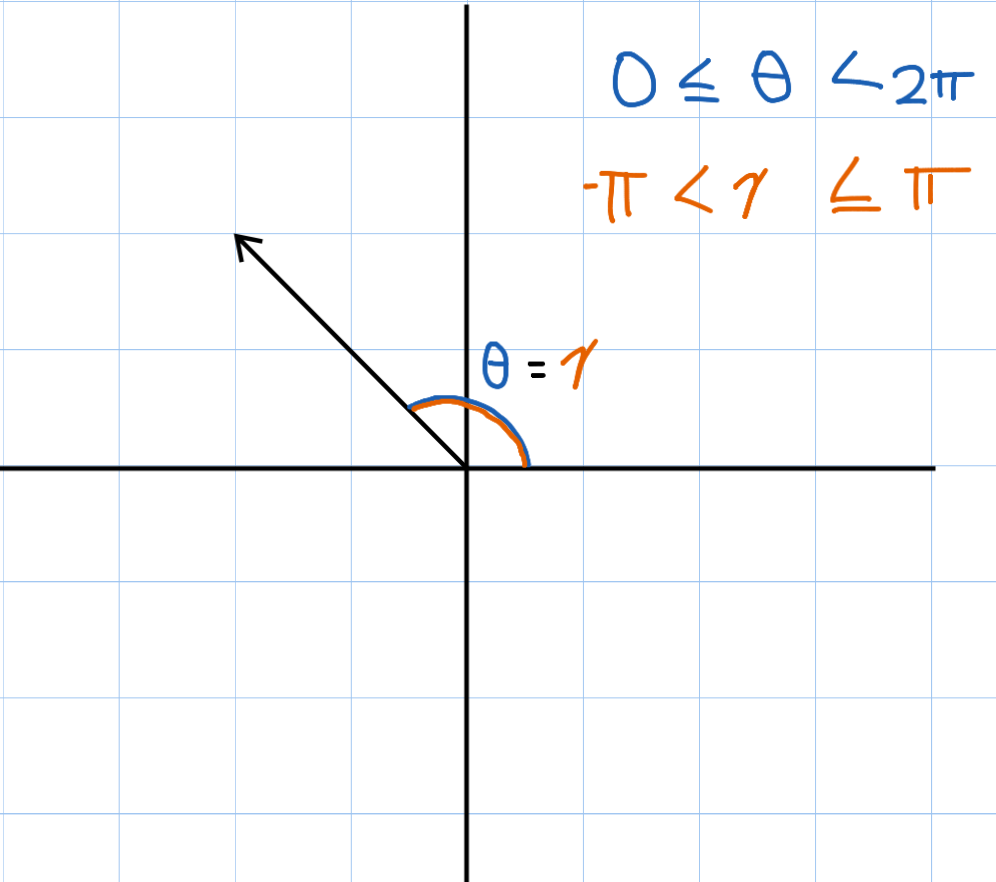 0 ≤ θ < 2π
-π < γ ≤ π
θ = γ